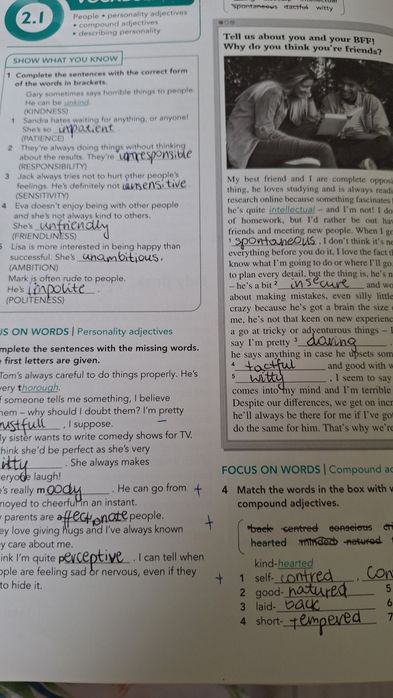 2.1
People • personality adjectives
• compound adjectives
• describing personality
SHOW WHAT YOU KNOW
1 Complete the sentences with the correct form
of the words in brackets.
Gary sometimes says horrible things to people.
He can be unkind.
(KINDNESS)
1 Sandra hates waiting for anything, or anyone!
She's so inpatient.
(PATIENCE)
2 They're always doing things without thinking
about the results. They're irresponsible
(RESPONSIBILITY)
3 Jack always tries not to hurt other people's
feelings. He's definitely not insensitive
(SENSITIVITY)
4 Eva doesn't enjoy being with other people
and she's not always kind to others.
She's unfriendly
(FRIENDLINESS)
5 Lisa is more interested in being happy than
successful. She's unambitious.
(AMBITION)
Mark is often rude to people.
He's impolite.
(POLITENESS)
US ON WORDS | Personality adjectives
mplete the sentences with the missing words.
e first letters are given.
Tom's always careful to do things properly. He's
very thorough.
f someone tells me something, I believe
hem – why should I doubt them? I'm pretty
rustfull, I suppose.
y sister wants to write comedy shows for TV.
hink she'd be perfect as she's very
itty. She always makes
eryone laugh!
e's really moody. He can go from
nnoyed to cheerful in an instant.
y parents are affectionate people.
ey love giving hugs and I've always known
y care about me.
ink I'm quite perceptive. I can tell when
ople are feeling sad or nervous, even if they
to hide it.
spontaneous tactful witty
Tell us about you and your BFF!
Why do you think you're friends?
My best friend and I are complete oppos
thing, he loves studying and is always readi
research online because something fascinates
he's quite intellectual – and I'm not! I do
of homework, but I'd rather be out hav
friends and meeting new people. When I ge
1 spontaneous. I don't think it's ne
everything before you do it, I love the fact th
know what I'm going to do or where I'll go
to plan every detail, but the thing is, he's n
– he's a bit 2 insecure and wo
about making mistakes, even silly little
crazy because he's got a brain the size o
me, he's not that keen on new experienc
a go at tricky or adventurous things – I
say I'm pretty 3 daring
he says anything in case he upsets som
4 tactful and good with w
5 witty. I seem to say
comes into my mind and I'm terrible
Despite our differences, we get on incr
he'll always be there for me if I've go
do the same for him. That's why we're
FOCUS ON WORDS | Compound ad
4 Match the words in the box with w
compound adjectives.
back centred conscious
hearted minded natured
kind-hearted
1 self- centred, con
2 good- natured 5
3 laid- back 6
4 short- tempered 7